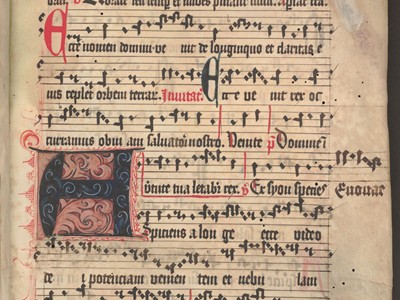 et nubes pluant
Ecce nomen domini ve nit de longinquo et claritas e
ius replet orbem terrar. Invitat. Ecce ve nit rex oc
curramus obvi am salvatori nostro. Venite p Domine
tute tua letabit rex. Ex syon species Euouae
Aspiciens a lon ge ecce video
de i potenciam venien tem et nebu lam